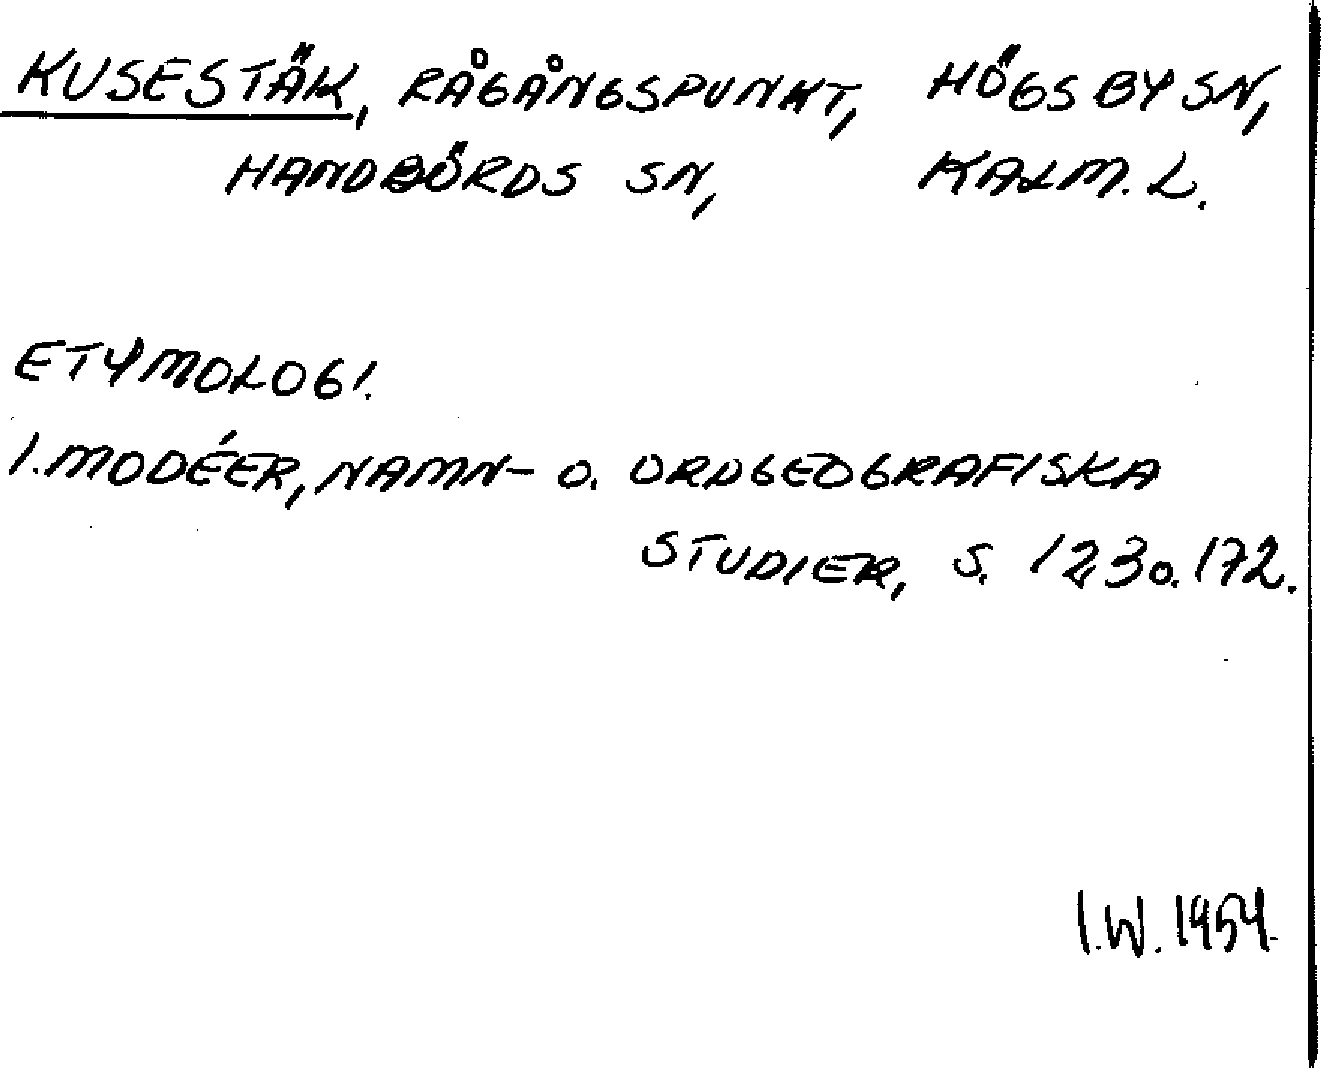 KUSESTÄK, RÅGÅNGSPUNKT, HÖGSBY SN,
HANDBÖRDS SN, KALM. L.
ETYMOLOGI.
I. MODÉER, NAMN- O. ORDGEOGRAFISKA
STUDIER, S. 123 o. 172.
I.W. 1954.